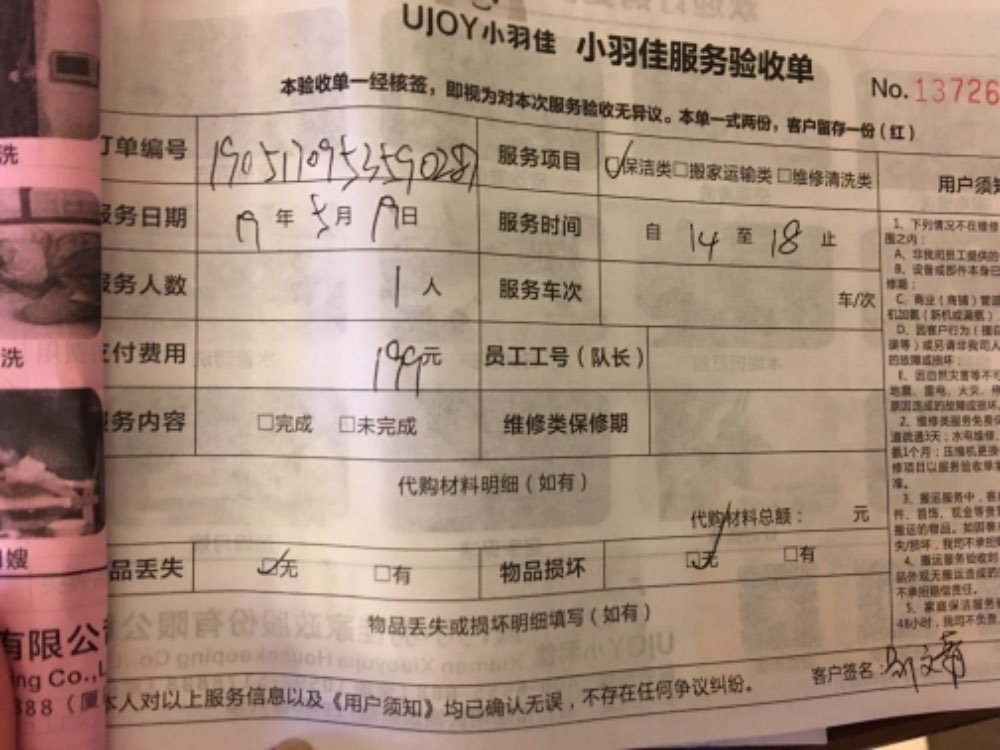 UJOY小羽佳 小羽佳服务验收单
No. 13726
本验收单一经核签，即视为对本次服务验收无异议。本单一式两份，客户留存一份（红）
订单编号 190517095359028 服务项目 保洁类 □搬家运输类 □维修清洗类
用户须知
服务日期 19 年 5 月 19 日 服务时间 自 14 至 18 止
服务人数 1 人 服务车次 车/次
支付费用 199元 员工工号（队长）
服务内容 □完成 □未完成 维修类保修期
代购材料明细（如有）
代购材料总额： 元
品丢失 无 □有 物品损坏 无 □有
物品丢失或损坏明细填写（如有）
本人对以上服务信息以及《用户须知》均已确认无误，不存在任何争议纠纷。
客户签名：
1、下列情况不在维修
围之内：
A、非我司员工提供的
B、设备或部件本身已
修期；
C、商业（商铺）管道
机加氨（新机或漏氨）
D、因客户行为（擅自
误等）或另请非我司人
的故障或损坏；
E、因自然灾害等不可
地震、雷电、火灾、
原因造成的故障或损坏
2、维修类服务免费保
道疏通3天；水电维修
氨1个月；压缩机更换
修项目以服务验收单
准。
3、搬运服务中，客
件、首饰、现金等贵
搬运的物品，如因
失/损坏，我司不承担
4、搬运服务验收时
品外观无搬运造成的
不承担赔偿责任。
5、家庭保洁服务
48小时，我司不负责
洗
洗
嫂
有限公
ing Co.,L
888（厦